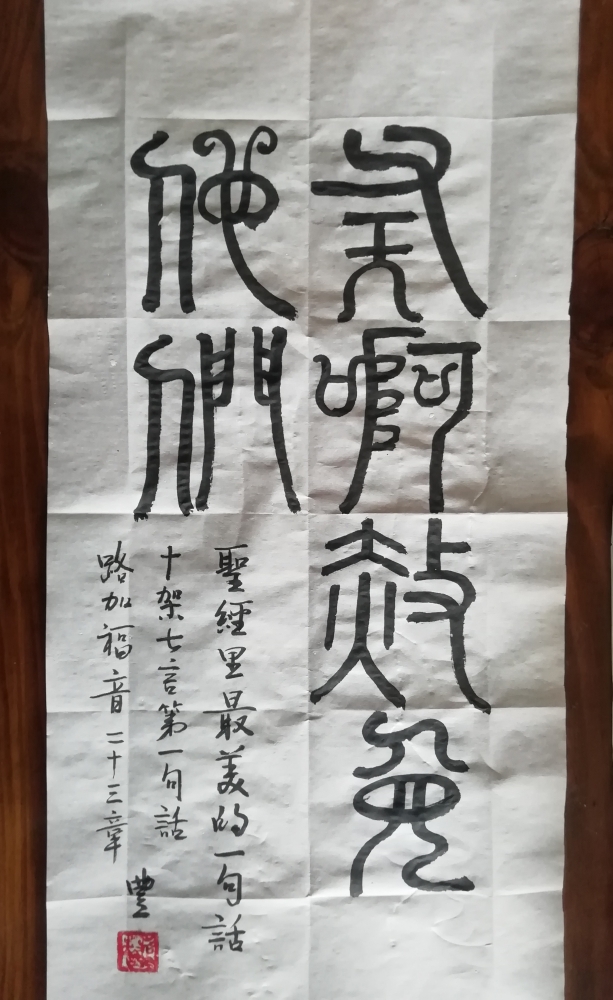 父啊赦免
他們
聖經里最美的一句話
十架七言第一句話
路加福音二十三章
豐